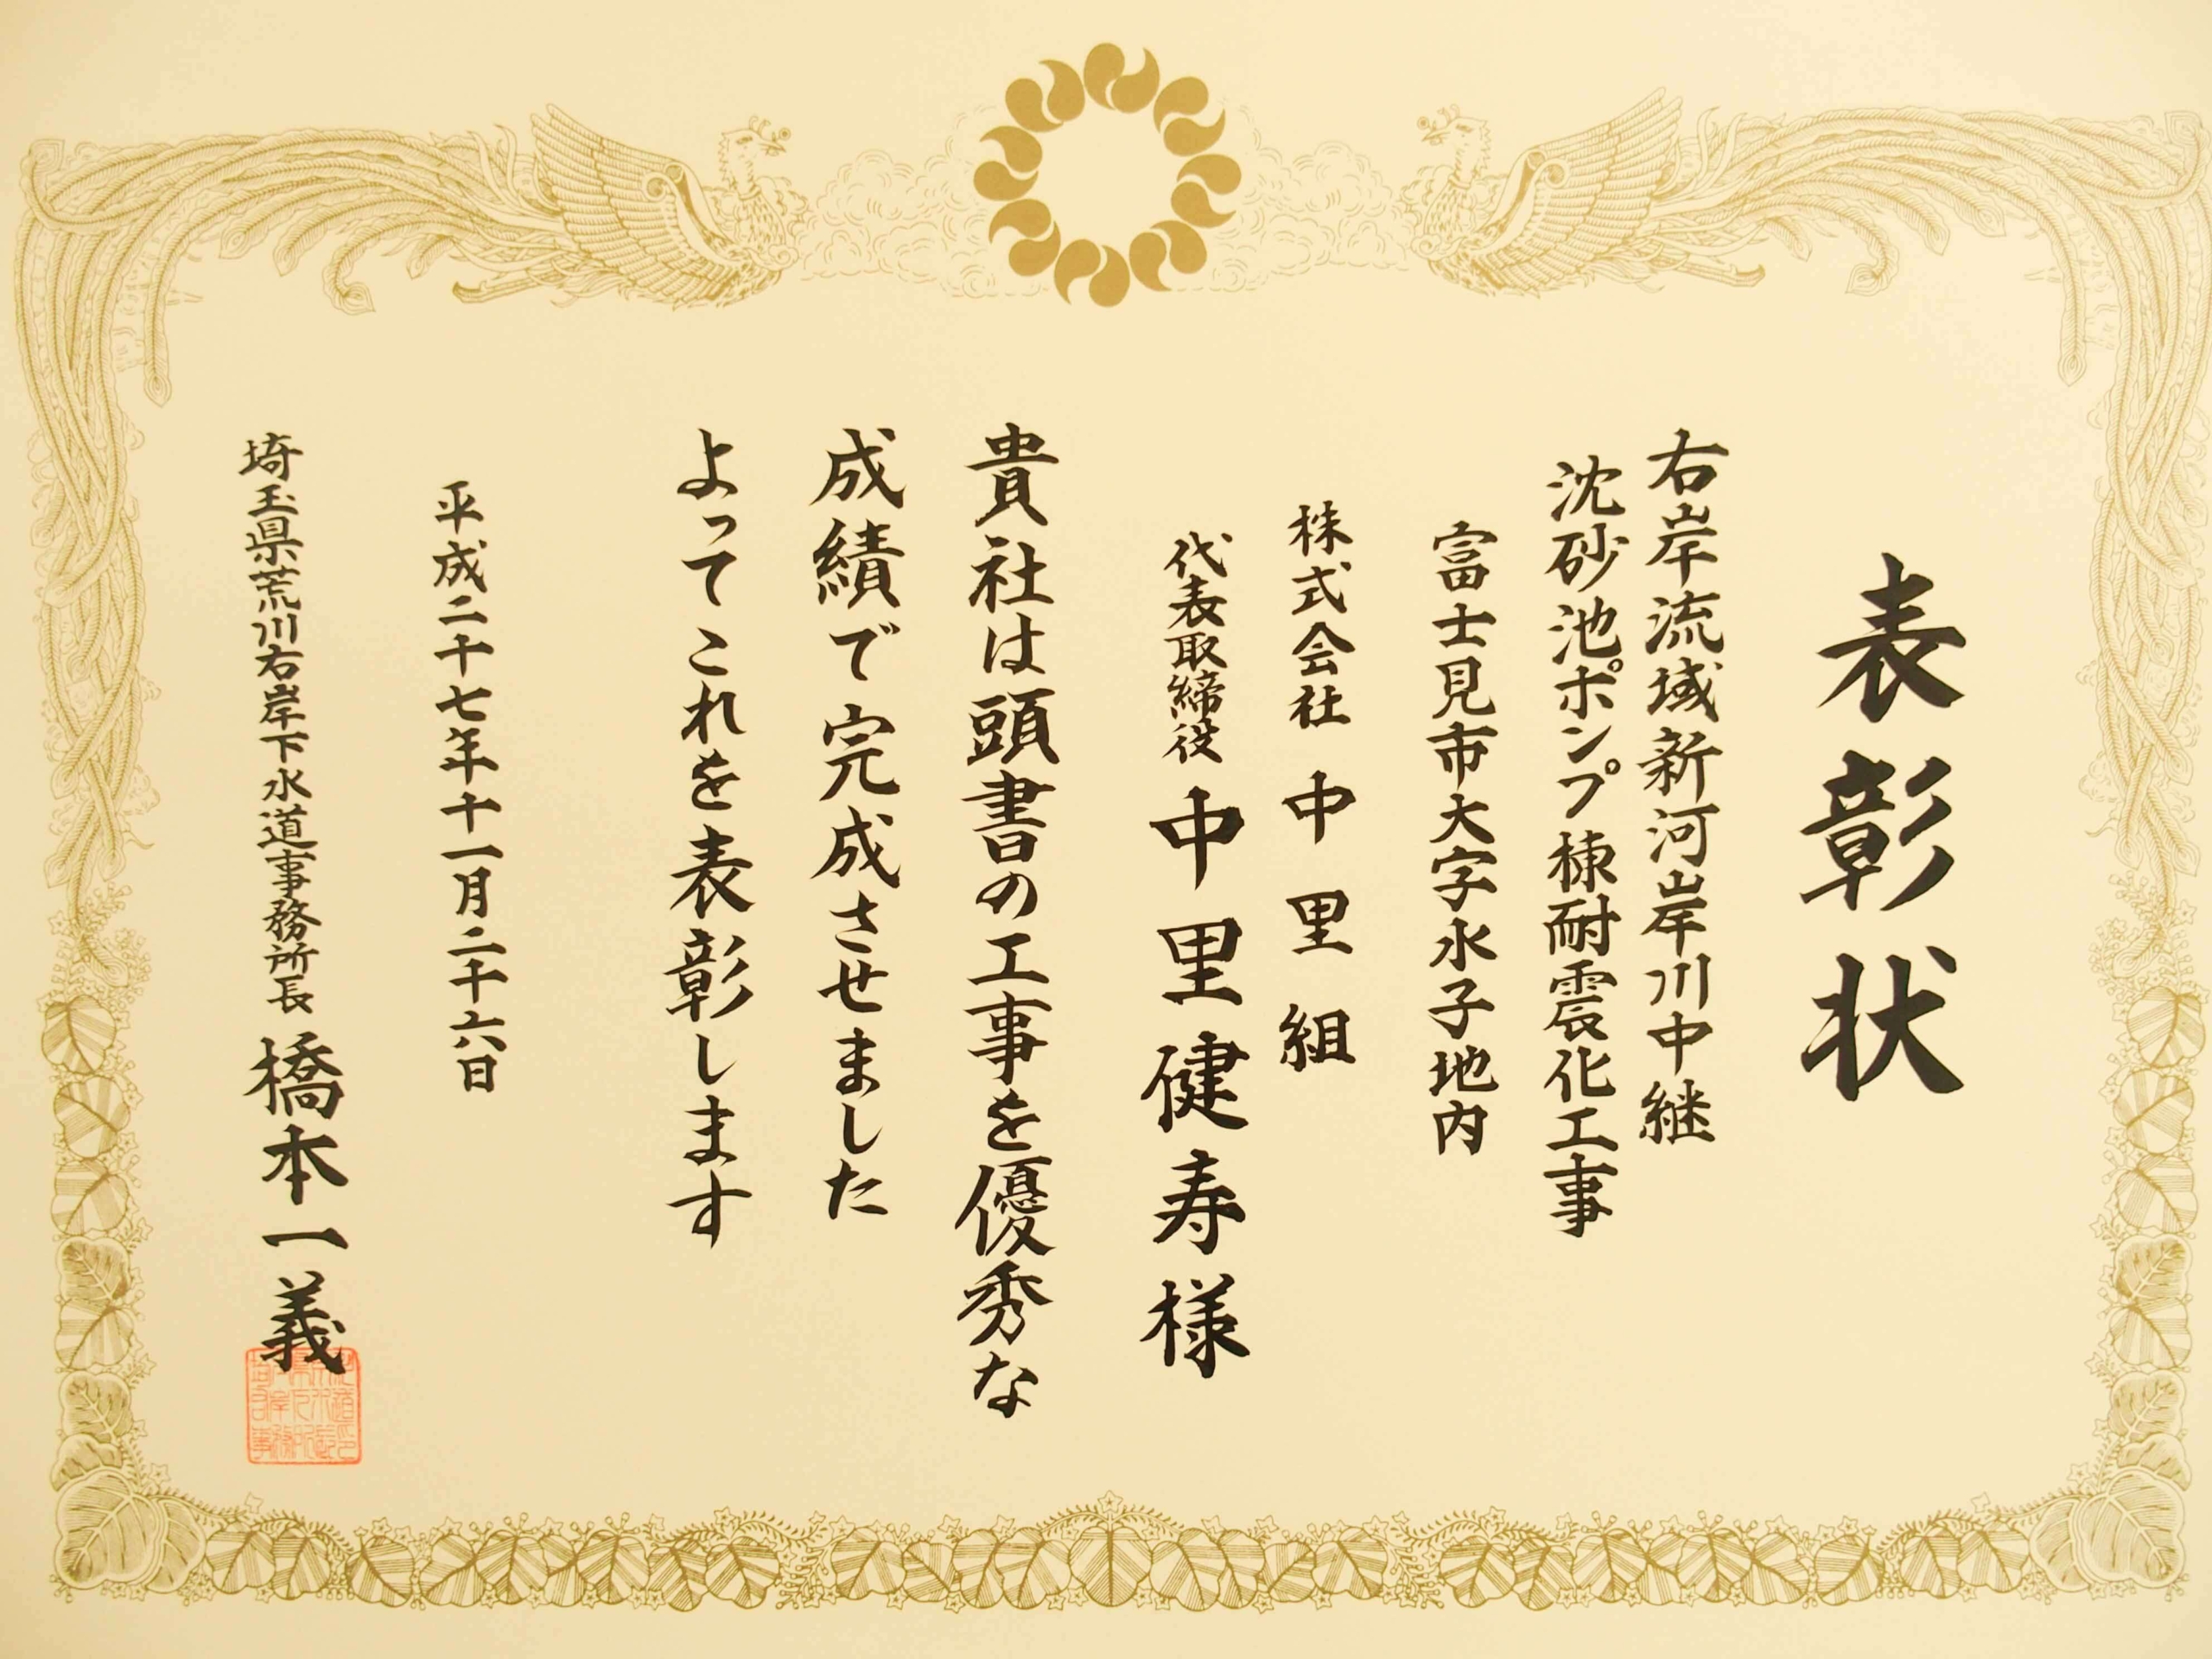 表彰状
右岸流域新河岸川中継
沈砂池ポンプ棟耐震化工事
富士見市大字水子地内
株式会社 中里組
代表取締役 中里健寿様
貴社は頭書の工事を優秀な
成績で完成させました
よってこれを表彰します
平成二十七年十一月二十六日
埼玉県荒川右岸下水道事務所長 橋本一義